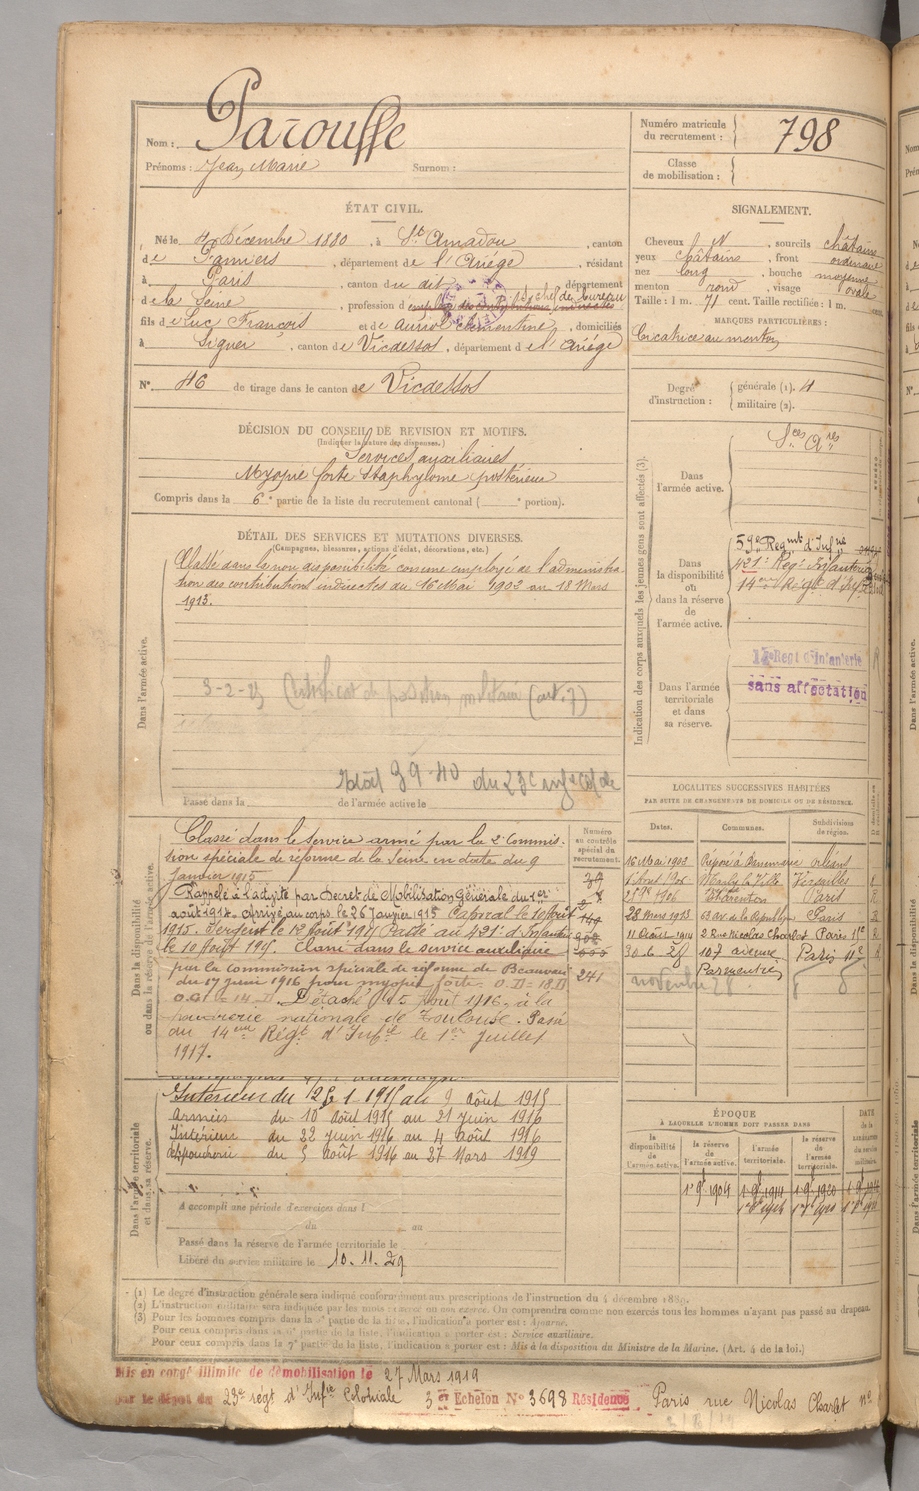 Nom : Parouffe
Prénoms : Jean Marie Surnom :
Numéro matricule du recrutement : 798
Classe de mobilisation :
ÉTAT CIVIL.
Né le 4 Décembre 1880, à St Amadou, canton
de Pamiers, département de l'Ariége, résidant
à Paris, canton du dit, département
de la Seine, profession d'employé des contributions indirectes s/chef de bureau
fils de Luc François et de Auriol Clémentine, domiciliés
à Siguer, canton de Vicdessos, département de l'Ariége
N° 46 de tirage dans le canton de Vicdessos
SIGNALEMENT.
Cheveux N, sourcils châtains
yeux châtains, front ordinaire
nez long, bouche moyenne
menton rond, visage ovale
Taille : 1 m. 71 cent. Taille rectifiée : 1 m. cent.
MARQUES PARTICULIÈRES :
Cicatrice au menton
Degré d'instruction : générale (1). 4
militaire (2).
DÉCISION DU CONSEIL DE REVISION ET MOTIFS.
(Indiquer la nature des dispenses.)
Services auxiliaires
Myopie forte Staphylome postérieur
Compris dans la 6e partie de la liste du recrutement cantonal ( e portion).
DÉTAIL DES SERVICES ET MUTATIONS DIVERSES.
(Campagnes, blessures, actions d'éclat, décorations, etc.)
Dans l'armée active.
Classé dans la non disponibilité comme employé de l'administra-
tion des contributions indirectes du 16 Mai 1902 au 18 Mars
1913.
3-2-25 Certificat de position militaire (art. 7)
39-40 du 23e infie colale
Passé dans la de l'armée active le
Indication des corps auxquels les jeunes gens sont affectés (3).
Dans l'armée active.
Sces Ares
Dans la disponibilité ou dans la réserve de l'armée active.
59e Regmt d'Infrie
421e Regt Infanterie
14eme Régt d'Inf.
Dans l'armée territoriale et dans sa réserve.
14e Regt d'Infanterie
sans affectation
Dans la disponibilité ou dans la réserve de l'armée active.
Classé dans le Service armé par la 2e Commis-
sion spéciale de réforme de la Seine en date du 9
Janvier 1915
Rappelé à l'activité par Décret de Mobilisation Générale du 1er
août 1914. Arrivé au corps le 26 Janvier 1915 Caporal le 10 Août
1915. Sergent le 12 Août 1915 Passé au 421e d'Infanterie
le 10 Août 1915. Classé dans le service auxiliaire
par la commission spéciale de réforme de Beauvais
du 17 juin 1916 pour myopie forte. O.D = 18 D
O.G = 14 D. Détaché le 5 Août 1916, à la
poudrerie nationale de Toulouse. Passé
au 14eme Régt d'Infie le 1er Juillet
1917.
Numéro au contrôle spécial du recrutement.
241
LOCALITÉS SUCCESSIVES HABITÉES
PAR SUITE DE CHANGEMENTS DE DOMICILE OU DE RÉSIDENCE.
Dates. Communes. Subdivisions de région.
16 Mai 1903 Orléans
Marly la Ville Versailles
1906 Charenton Paris
28 Mars 1913 63 Av. de la République Paris
11 Août 1914 2 Rue Nicolas Charlet Paris
30.6.28 107 avenue Parmentier Paris 11e
novembre 28
Dans l'armée territoriale et dans sa réserve.
Intérieur du 26-1-1915 au 9 Août 1915
Armées du 10 Août 1915 au 21 Juin 1916
Intérieur du 22 Juin 1916 au 4 Août 1916
Poudrerie du 5 Août 1916 au 27 Mars 1919
A accompli une période d'exercices dans l
du au
Passé dans la réserve de l'armée territoriale le
Libéré du service militaire le 10.11.29
ÉPOQUE
À LAQUELLE L'HOMME DOIT PASSER DANS
la disponibilité de l'armée active. la réserve de l'armée active. l'armée territoriale. la réserve de l'armée territoriale.
1er 9bre 1904 1er 9bre 1914 1er 9bre 1920
(1) Le degré d'instruction générale sera indiqué conformément aux prescriptions de l'instruction du 4 décembre 1889.
(2) L'instruction militaire sera indiquée par les mots : exercé ou non exercé. On comprendra comme non exercés tous les hommes n'ayant pas passé au drapeau.
(3) Pour les hommes compris dans la partie de la liste, l'indication à porter est : Ajourné.
Pour ceux compris dans la 6e partie de la liste, l'indication à porter est : Service auxiliaire.
Pour ceux compris dans la 7e partie de la liste, l'indication à porter est : Mis à la disposition du Ministre de la Marine. (Art. 4 de la loi.)
Mis en congé illimité de démobilisation le 27 Mars 1919
par le dépôt du 23e régt d'Infie Coloniale 3er Echelon N° 3698 Résidence Paris rue Nicolas Charlet no